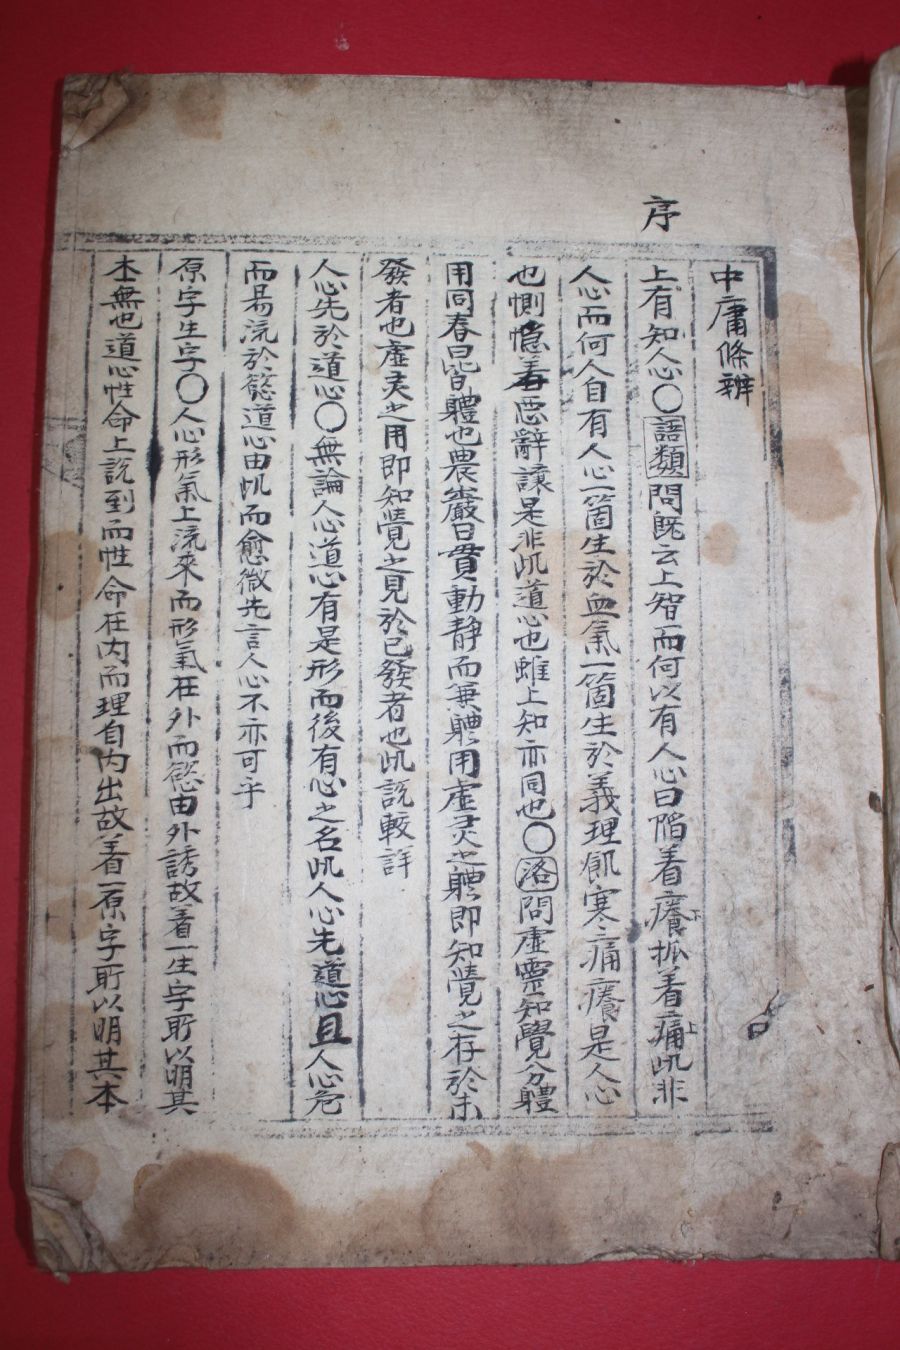 序
中庸條辨
上有知人心〇語類問旣云上智而何以有人心曰陷着痒抓着痛此非
人心而何人自有人心一箇生於血氣一箇生於義理飢寒痛痒是人心
也惻隱羞惡辭讓是非此道心也雖上知亦同也〇洛問虛靈知覺分體
用同春曰皆體也農巖曰貫動靜而兼體用虛灵之體卽知覺之存於未
發者也虛灵之用卽知覺之見於已發者也此說較詳
人心先於道心〇無論人心道心有是形而後有心之名此人心先道心且人心危
而易流於慾道心由此而愈微先言人心不亦可乎
原字生字〇人心形氣上流來而形氣在外而慾由外誘故着一生字所以明其
本無也道心性命上說到而性命在內而理自內出故着一原字所以明其本